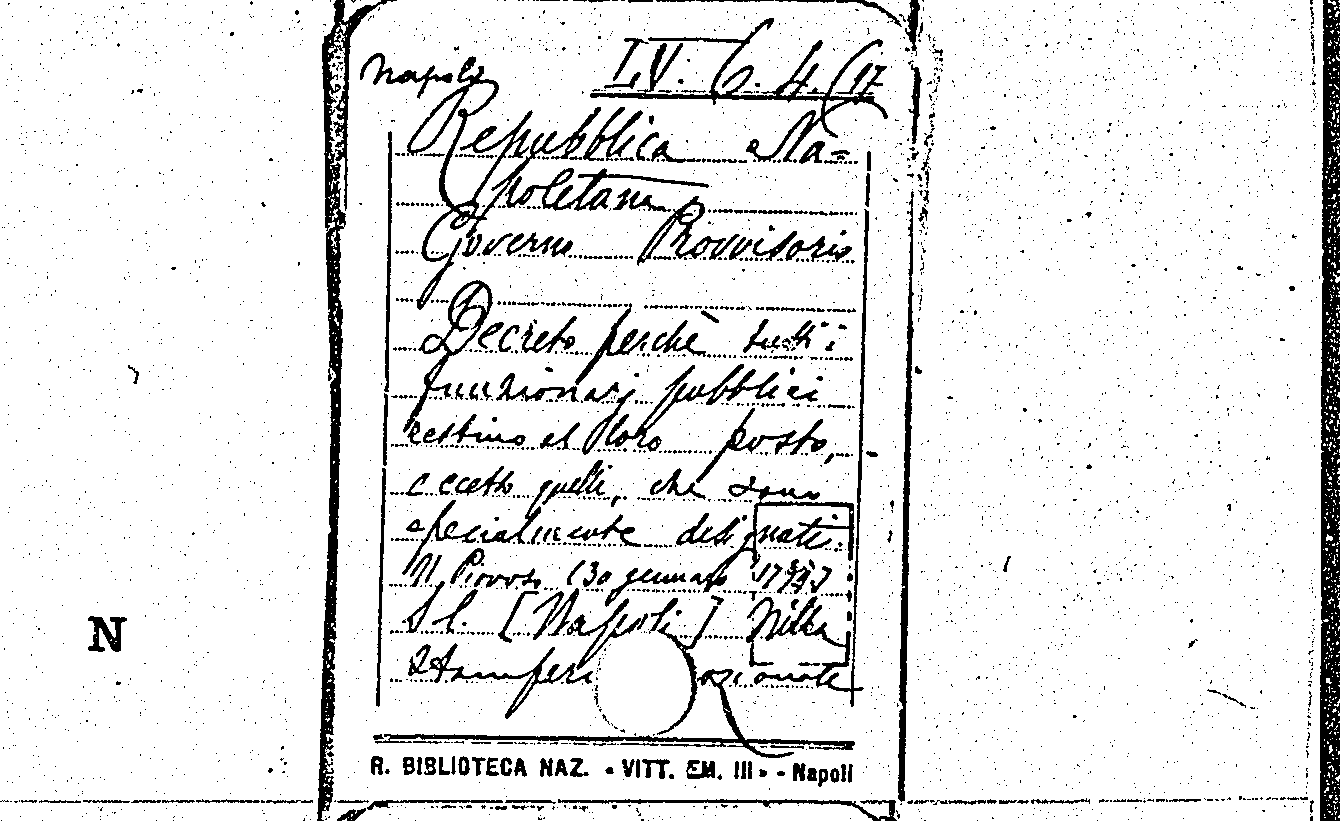 Napoli L.V. 6. 4. (17
Repubblica Na=
poletana
Governo Provvisorio
Decreto perchè tutti i
funzionarj pubblici
restino al loro posto,
eccetto quelli, che sono
specialmente designati.
11 Piovoso (30 gennajo 1799)
S l. [Napoli] Nella
Stamperi azionale
N
R. BIBLIOTECA NAZ. « VITT. EM. III » - Napoli